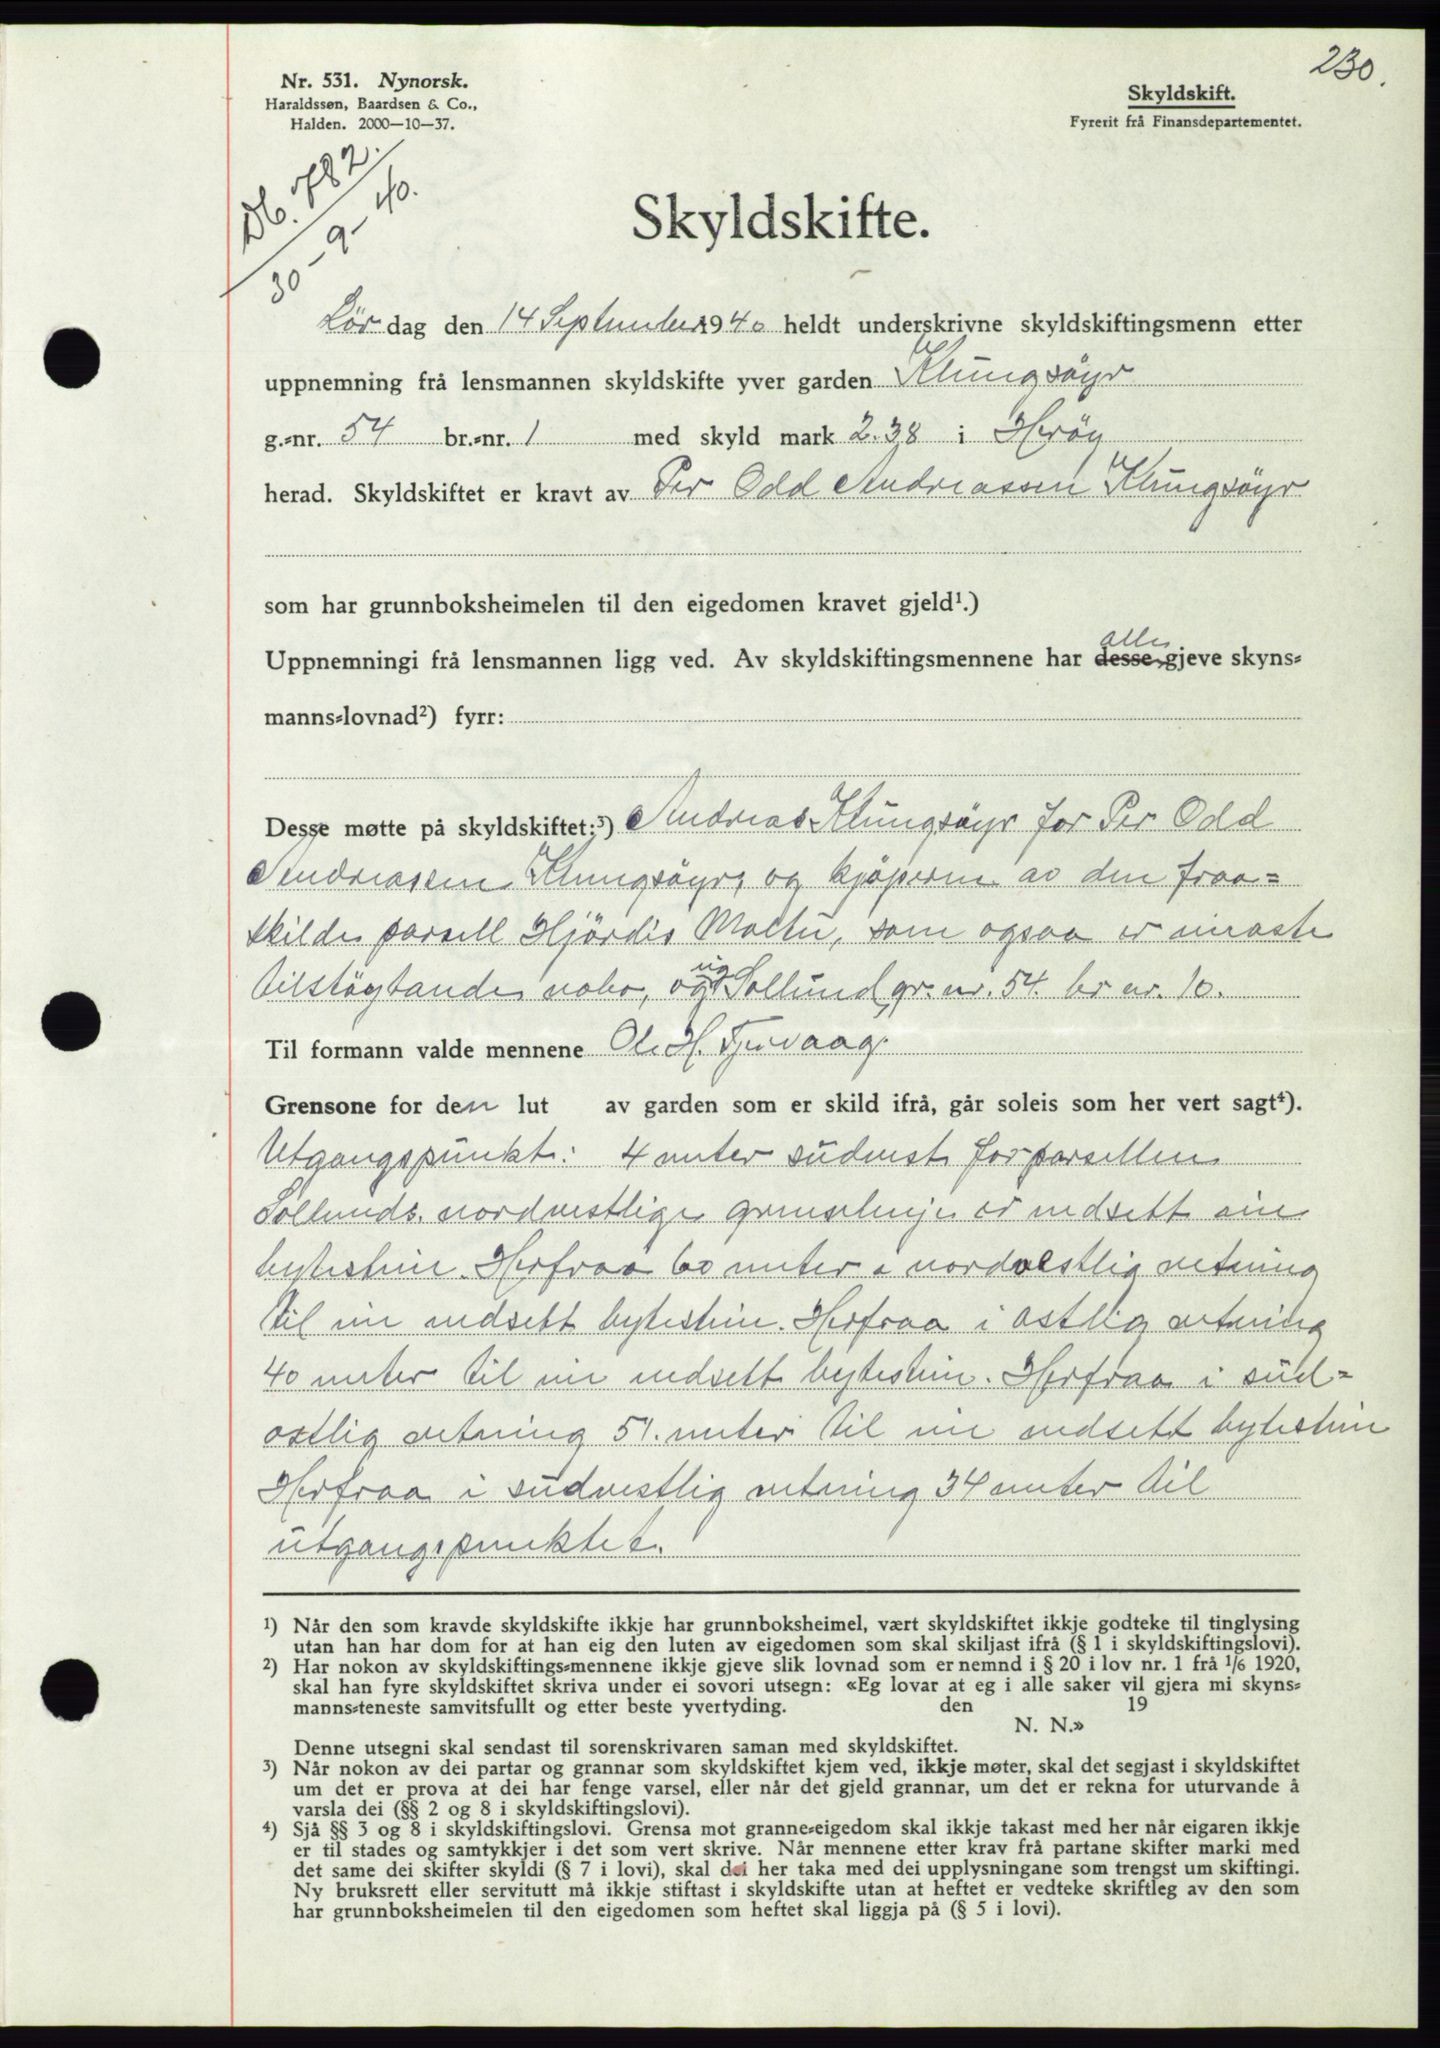 230.
Nr. 531. Nynorsk.
Haraldssøn, Baardsen & Co.,
Halden. 2000—10—37.
Skyldskift.
Fyrerit frå Finansdepartementet.
Db. 782.
30-9-40.
Skyldskifte.
Lör dag den 14 September 1940 heldt underskrivne skyldskiftingsmenn etter
uppnemning frå lensmannen skyldskifte yver garden Klungsöyr
g.=nr. 54 br.=nr. 1 med skyld mark 2.38 i Heröy
herad. Skyldskiftet er kravt av Per Odd Andreassen Klungsöyr
som har grunnboksheimelen til den eigedomen kravet gjeld¹.)
alle
Uppnemningi frå lensmannen ligg ved. Av skyldskiftingsmennene har desse gjeve skyns=
manns=lovnad²) fyrr:
Desse møtte på skyldskiftet:³) Andreas Klungsöyr for Per Odd
Andreassen Klungsöyr, og kjöperen av den fraa=
skilde parsell Hjördis Moltu, som ogsaa er næraste
tilstöytande nabo, og eig Sollund, gr. nr. 54. br nr. 10.
Til formann valde mennene Ole H. Tjervaag.
Grensone for den lut av garden som er skild ifrå, går soleis som her vert sagt⁴).
Utgangspunkt: 4 meter südvest for parsellen
Sollunds nordvestlige grenselinje er nedsett ein
bytestein. Herfraa 60 meter i nordvestlig retning
til ein nedsett bytestein. Herfraa i ostlig retning
40 meter til ein nedsett bytestein. Herfraa i süd=
ostlig retning 51. meter til ein nedsett bytestein
Herfraa i südvestlig retning 34 meter til
utgangspunktet.
¹) Når den som kravde skyldskifte ikkje har grunnboksheimel, vært skyldskiftet ikkje godteke til tinglysing
utan han har dom for at han eig den luten av eigedomen som skal skiljast ifrå (§ 1 i skyldskiftingslovi).
²) Har nokon av skyldskiftings=mennene ikkje gjeve slik lovnad som er nemnd i § 20 i lov nr. 1 frå 1/6 1920,
skal han fyre skyldskiftet skriva under ei sovori utsegn: «Eg lovar at eg i alle saker vil gjera mi skyns=
manns=teneste samvitsfullt og etter beste yvertyding. den 19
N. N.»
Denne utsegni skal sendast til sorenskrivaren saman med skyldskiftet.
³) Når nokon av dei partar og grannar som skyldskiftet kjem ved, ikkje møter, skal det segjast i skyldskiftet
um det er prova at dei har fenge varsel, eller når det gjeld grannar, um det er rekna for uturvande å
varsla dei (§§ 2 og 8 i skyldskiftingslovi).
⁴) Sjå §§ 3 og 8 i skyldskiftingslovi. Grensa mot granne=eigedom skal ikkje takast med her når eigaren ikkje
er til stades og samtykkjer i det som vert skrive. Når mennene etter krav frå partane skifter marki med
det same dei skifter skyldi (§ 7 i lovi), skal dei her taka med dei upplysningane som trengst um skiftingi.
Ny bruksrett eller servitutt må ikkje stiftast i skyldskifte utan at heftet er vedteke skriftleg av den som
har grunnboksheimelen til den eigedomen som heftet skal liggja på (§ 5 i lovi).